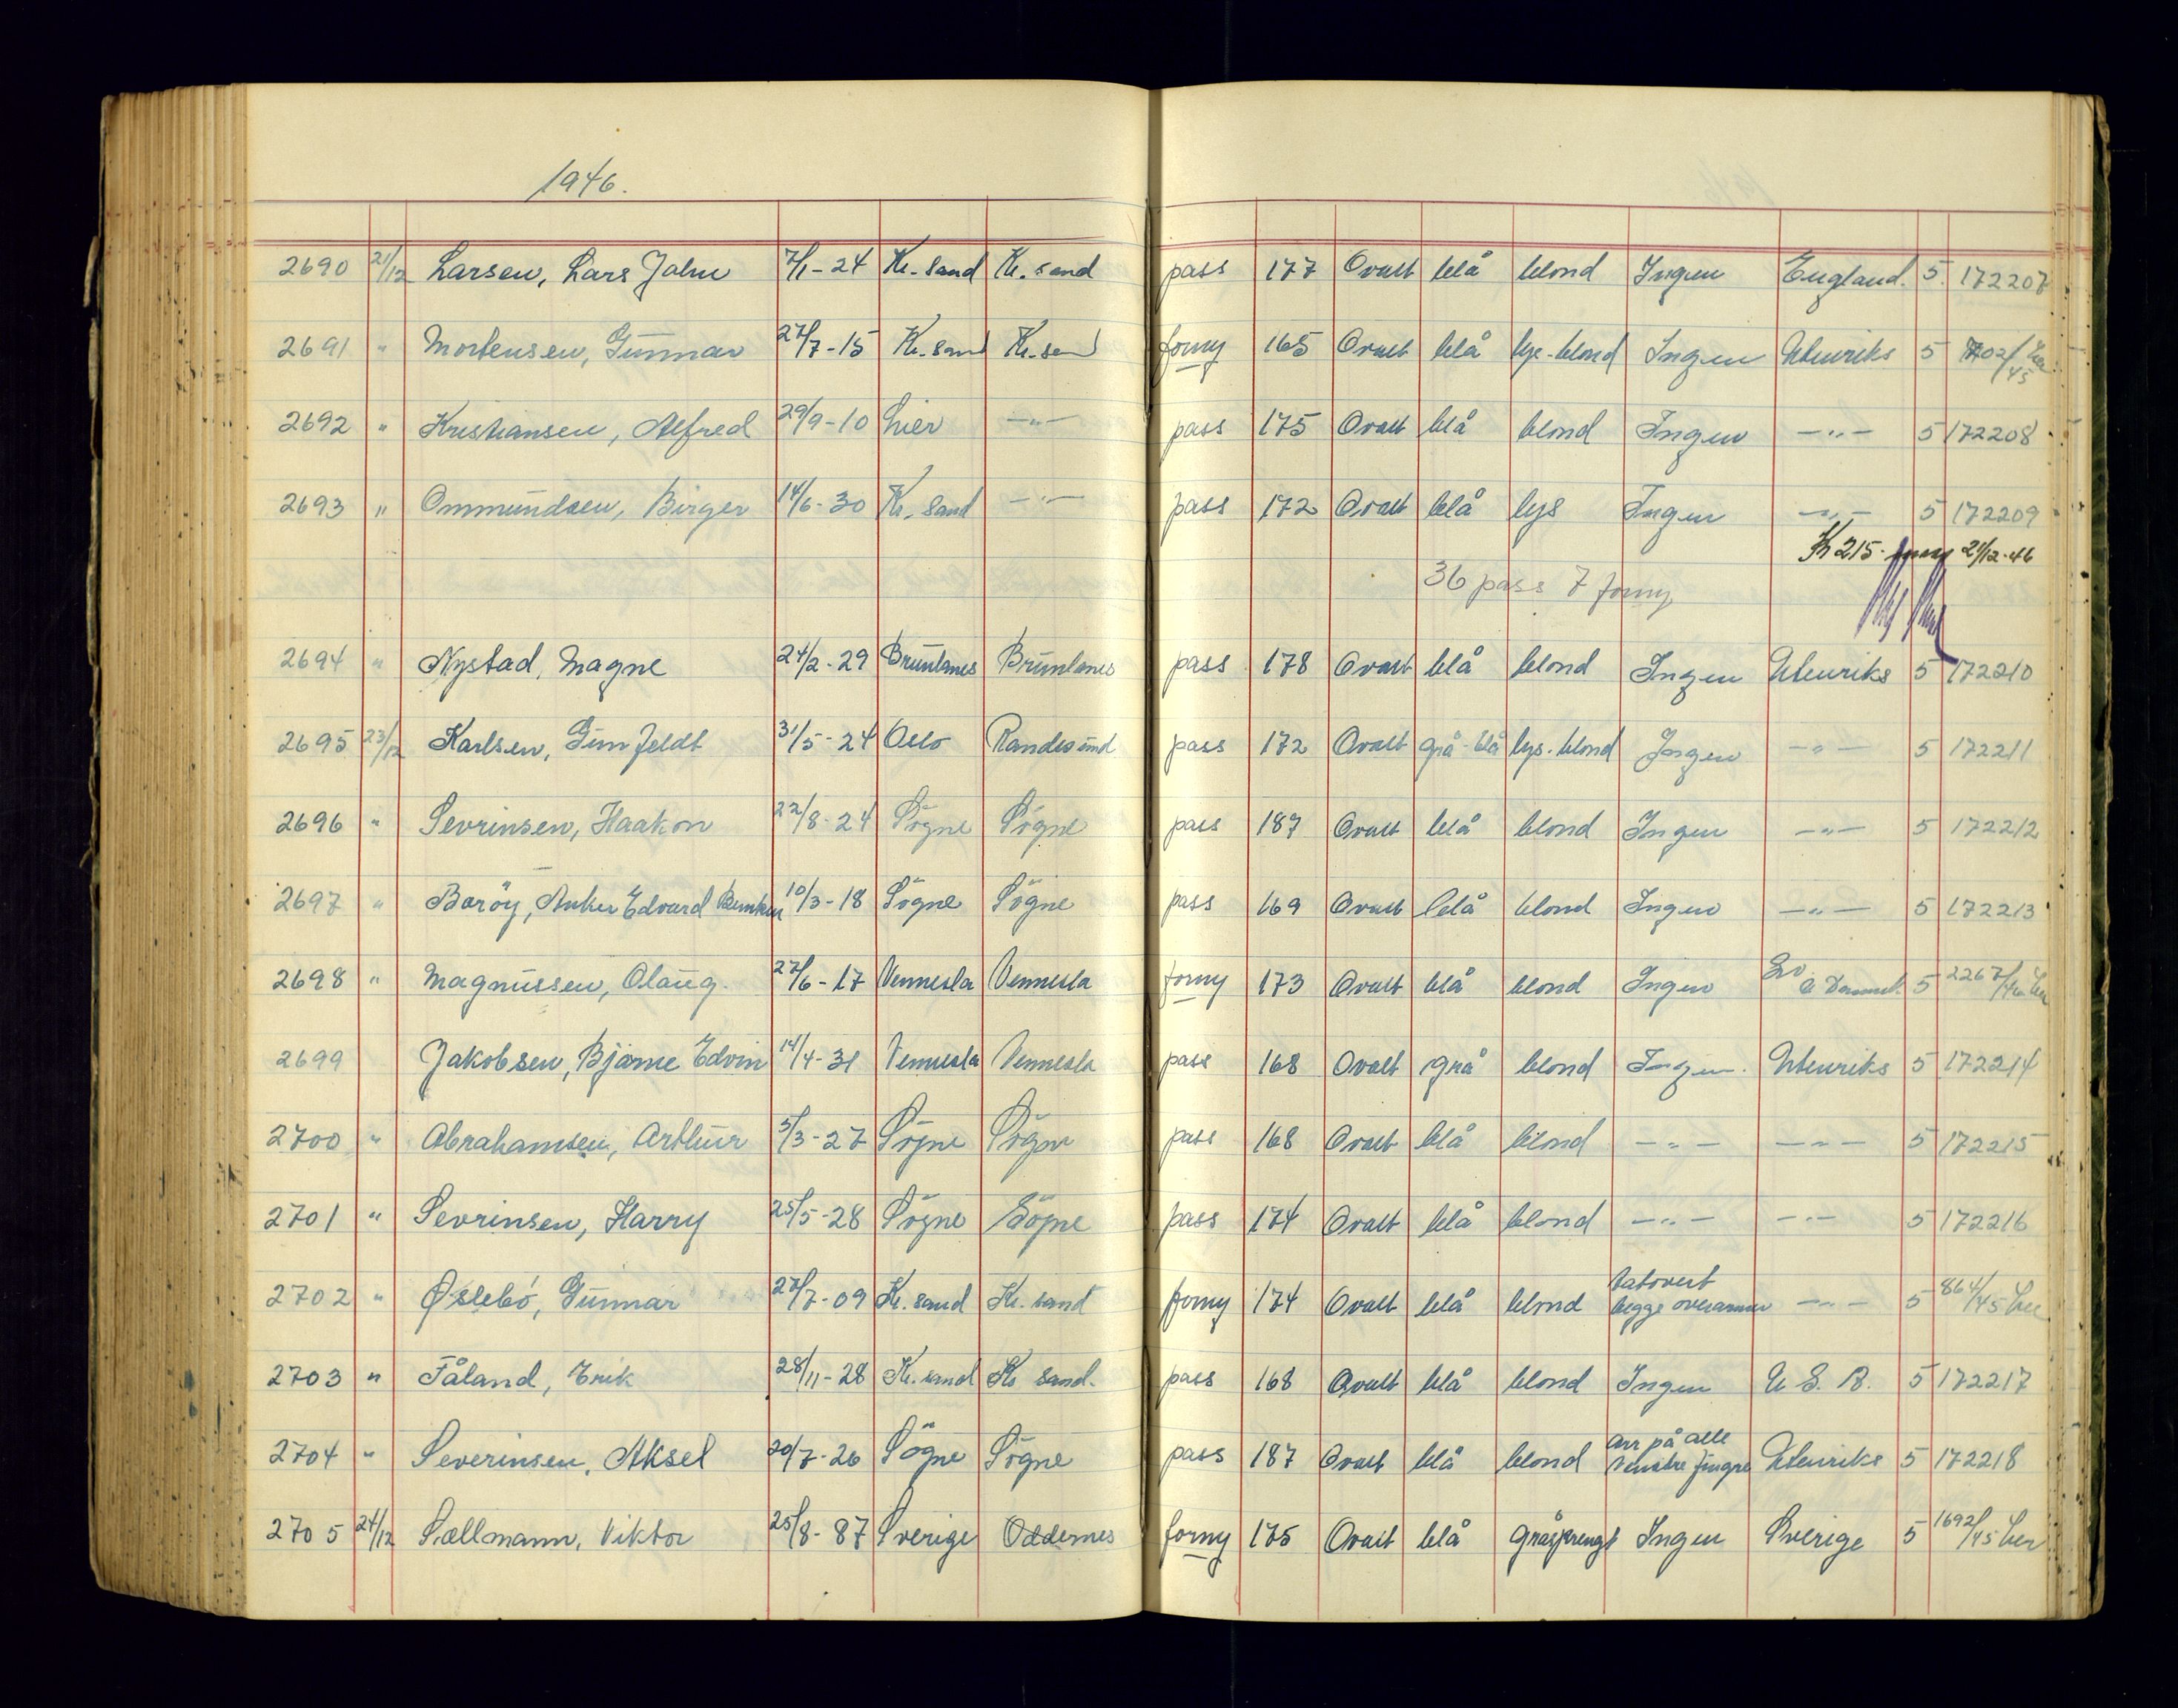 1946.
2690 21/12 Larsen, Lars John 7/1-24 Kr.sand Kr.sand pass 177 Ovalt blå blond Ingen England. 5. 172207
2691 " Mortensen, Gunnar 27/7-15 Kr.sand Kr.sand forny 165 Ovalt blå lys-blond Ingen Utenriks 5 702/45 her
2692 " Kristiansen, Alfred 29/9-10 Lier —"— pass 175 Ovalt blå blond Ingen —"— 5 172208
2693 " Ommundsen, Birger 14/6-30 Kr.sand —"— pass 172 Ovalt blå lys Ingen —"— 5 172209
Kr 215.- 21/12-46
36 pass 7 forny
2694 " Nystad, Magne 24/2-29 Brunlanes Brunlanes pass 178 Ovalt blå blond Ingen Utenriks 5 172210
2695 23/12 Karlsen, Gunfeldt 31/5-24 Oslo Randesund pass 172 Ovalt grå-blå lys-blond Ingen —"— 5 172211
2696 " Sevrinsen, Haakon 22/8-24 Sögne Sögne pass 187 Ovalt blå blond Ingen —"— 5 172212
2697 " Boröy, Anker Edvard 10/3-18 Sögne Sögne pass 169 Ovalt blå blond Ingen —"— 5 172213
2698 " Magnussen, Olaug. 27/6-17 Vennesla Vennesla forny 173 Ovalt blå blond Ingen Sv. & Danmk. 5 2267/46 her
2699 Jakobsen, Bjarne Edvin 14/4-31 Vennesla Vennesla pass 168 Ovalt grå blond Ingen. Utenriks 5 172214
2700 " Abrahamsen, Arthur 5/3-27 Sögne Sögne pass 168 Ovalt blå blond —"— —"— 5 172215
2701 " Sevrinsen, Harry 25/5-28 Sögne Sögne pass 174 Ovalt blå blond —"— —"— 5 172216
2702 " Øslebö, Gunnar 27/7-09 Kr.sand Kr.sand forny 174 Ovalt blå blond tatovert begge overarmer —"— 5 864/45 her
2703 " Tåland, Erik 28/11-28 Kr.sand Kr sand. pass 168 Ovalt blå blond Ingen U.S.A. 5 172217
2704 " Severinsen, Aksel 20/7-26 Sögne Sögne pass 187 Ovalt blå blond arr på alle venstre fingre Utenriks 5 172218
2705 24/12 Sællmann, Viktor 25/8-87 Sverige Oddernes forny 175 Ovalt blå gråsprengt Ingen Sverige 5 1692/45 her